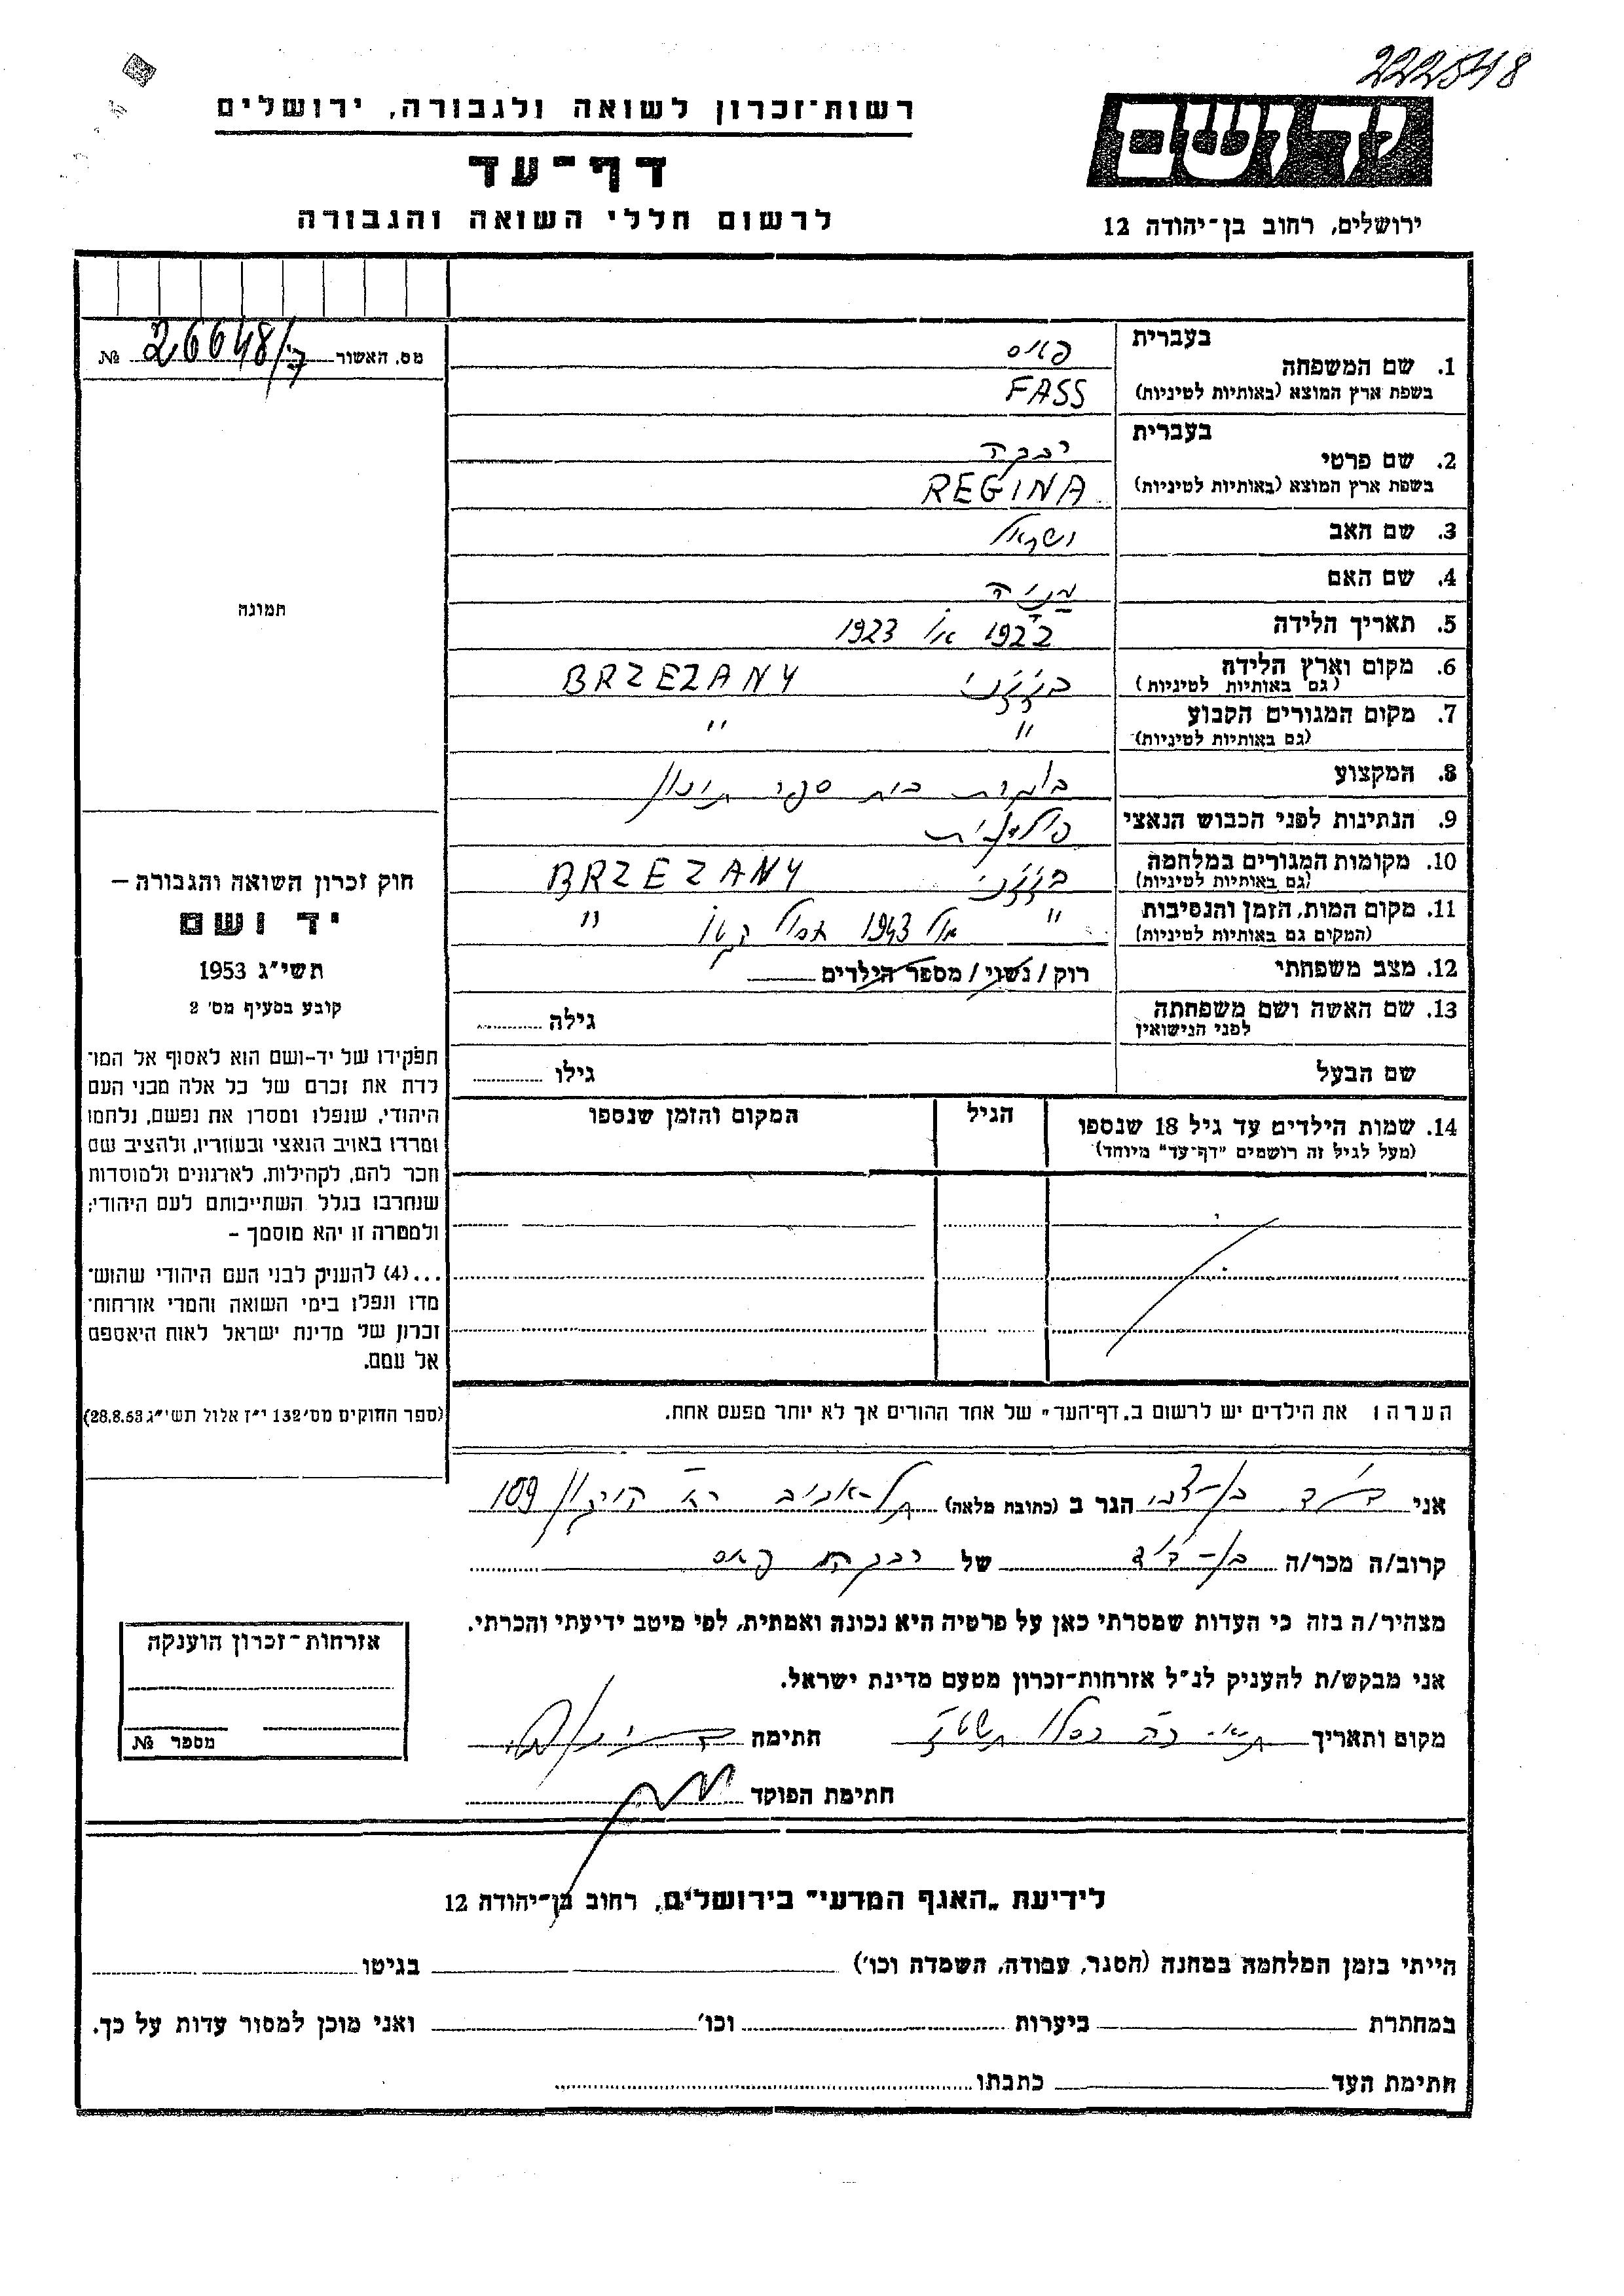 222548
רשות-זכרון לשואה ולגבורה, ירושלים
דף-עד
לרשום חללי השואה והגבורה
יד ושם
ירושלים, רחוב בן-יהודה 12
מס. האשור № 26648/ד
תמונה
חוק זכרון השואה והגבורה –
יד ושם
תשי"ג 1953
קובע בסעיף מס' 2
תפקידו של יד-ושם הוא לאסוף אל המו-
לדת את זכרם של כל אלה מבני העם
היהודי, שנפלו ומסרו את נפשם, נלחמו
ומרדו באויב הנאצי ובעוזריו, ולהציב שם
וזכר להם, לקהילות, לארגונים ולמוסדות
שנחרבו בגלל השתייכותם לעם היהודי;
ולמטרה זו יהא מוסמך –
...(4) להעניק לבני העם היהודי שהוש-
מדו ונפלו בימי השואה והמרי אזרחות-
זכרון של מדינת ישראל לאות היאספם
אל עמם.
(ספר החוקים מס' 132 י"ז אלול תשי"ג 28.8.53)
בעברית פאס
1. שם המשפחה
בשפת ארץ המוצא (באותיות לטיניות) FASS
בעברית רבקה
2. שם פרטי
בשפת ארץ המוצא (באותיות לטיניות) REGINA
3. שם האב ישראל
4. שם האם
5. תאריך הלידה 1922 או 1923
6. מקום וארץ הלידה (גם באותיות לטיניות) ברזזני BRZEZANY
7. מקום המגורים הקבוע (גם באותיות לטיניות) " "
8. המקצוע בוגרת בית ספר תיכון
9. הנתינות לפני הכבוש הנאצי פולנית
10. מקומות המגורים במלחמה (גם באותיות לטיניות) ברזזני BRZEZANY
11. מקום המות, הזמן והנסיבות (המקום גם באותיות לטיניות) " 1943 "
12. מצב משפחתי רוק / נשוי / מספר הילדים
13. שם האשה ושם משפחתה לפני הנישואין גילה
שם הבעל גילו
14. שמות הילדים עד גיל 18 שנספו הגיל המקום והזמן שנספו
(מעל לגיל זה רושמים "דף-עד" מיוחד)
הערה: את הילדים יש לרשום ב„דף-העד" של אחד ההורים אך לא יותר מפעם אחת.
אני דוד בן-צבי הגר ב (כתובת מלאה) תל-אביב רח' 109
קרוב/ה מכר/ה בן-דוד של רבקה פאס
מצהיר/ה בזה כי העדות שמסרתי כאן על פרטיה היא נכונה ואמתית, לפי מיטב ידיעתי והכרתי.
אני מבקש/ת להעניק לנ"ל אזרחות-זכרון מטעם מדינת ישראל.
מקום ותאריך כ"ה כסלו חתימה
חתימת הפוקד
אזרחות-זכרון הוענקה
מספר №
לידיעת „האגף המדעי" בירושלים, רחוב בן-יהודה 12
הייתי בזמן המלחמה במחנה (הסגר, עבודה, השמדה וכו') בגיטו
במחתרת ביערות וכו' ואני מוכן למסור עדות על כך.
חתימת העד כתבתו